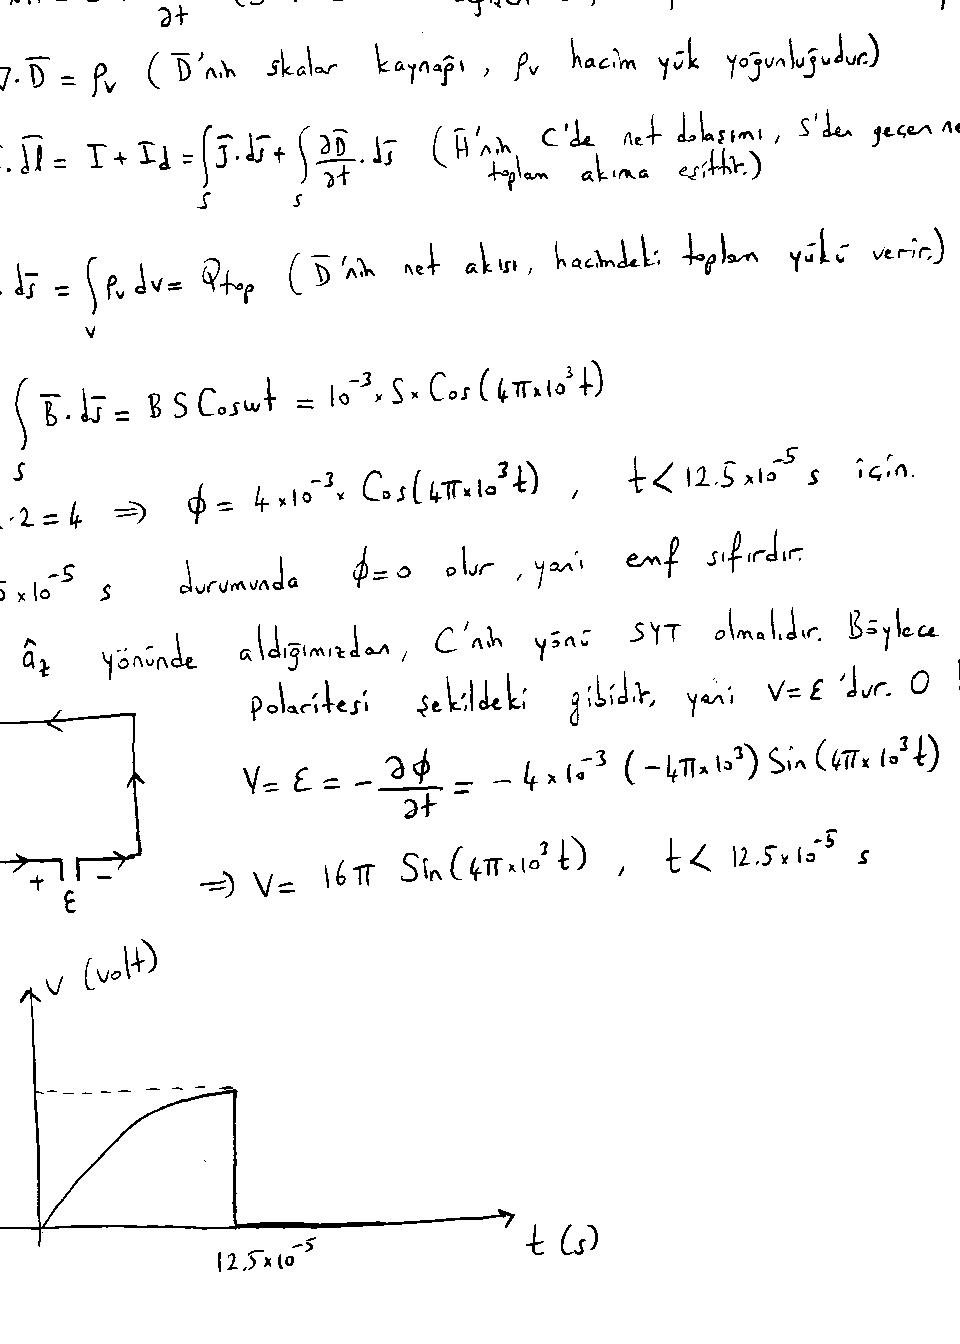 ∂t
∇·D̄ = ρv ( D̄'nin skalar kaynağı, ρv hacim yük yoğunluğudur.)
. dl̄ = I + Id = ∫S J̄·ds̄ + ∫S ∂D̄/∂t · ds̄ ( H̄'nin C'de net dolaşımı, S'den geçen ne
toplam akıma eşittir.)
. ds̄ = ∫v ρv dv = Qtop ( D̄'nin net akısı, hacimdeki toplam yükü verir.)
∫S B̄·ds̄ = B S Coswt = 10⁻³ × S × Cos(4π×10³t)
·2 = 4 ⇒ ϕ = 4×10⁻³ × Cos(4π×10³t) , t < 12.5×10⁻⁵ s için.
5×10⁻⁵ s durumunda ϕ=0 olur, yani emf sıfırdır.
âz yönünde aldığımızdan, C'nin yönü SYT olmalıdır. Böylece
polaritesi şekildeki gibidir, yani V=ε'dur. O !
V = ε = - ∂ϕ/∂t = - 4×10⁻³ (-4π×10³) Sin(4π×10³t)
⇒ V = 16π Sin(4π×10³t) , t < 12.5×10⁻⁵ s
+ -
ε
V (volt)
t (s)
12.5×10⁻⁵